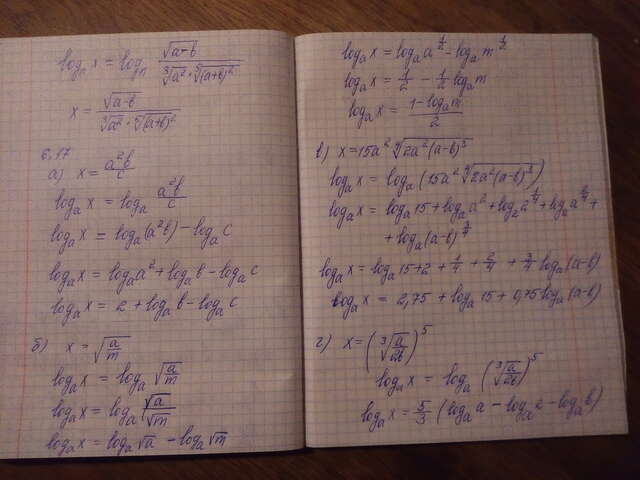 logₙ x = logₙ √(a-b) / (∛a² · ⁵√(a+b)²)
x = √(a-b) / (∛a² · ⁵√(a+b)²)
6.17
а) x = a²b/c
logₐ x = logₐ a²b/c
logₐ x = logₐ(a²b) - logₐ c
logₐ x = logₐ a² + logₐ b - logₐ c
logₐ x = 2 + logₐ b - logₐ c
б) x = √(a/m)
logₐ x = logₐ √(a/m)
logₐ x = logₐ √a/√m
logₐ x = logₐ √a - logₐ √m
logₐ x = logₐ a^(1/2) - logₐ m^(1/2)
logₐ x = 1/2 - 1/2 logₐ m
logₐ x = (1 - logₐ m)/2
в) x = 15a² ⁴√(2a²(a-b)³)
logₐ x = logₐ (15a² ⁴√(2a²(a-b)³))
logₐ x = logₐ 15 + logₐ a² + log₂ 2^(1/4) + logₐ a^(2/4) +
+ logₐ (a-b)^(3/4)
logₐ x = logₐ 15 + 2 + 1/4 + 2/4 + 3/4 logₐ (a-b)
logₐ x = 2,75 + logₐ 15 + 0,75 logₐ (a-b)
г) x = (∛(a/2b))⁵
logₐ x = logₐ (∛(a/2b))⁵
logₐ x = 5/3 (logₐ a - logₐ 2 - logₐ b)